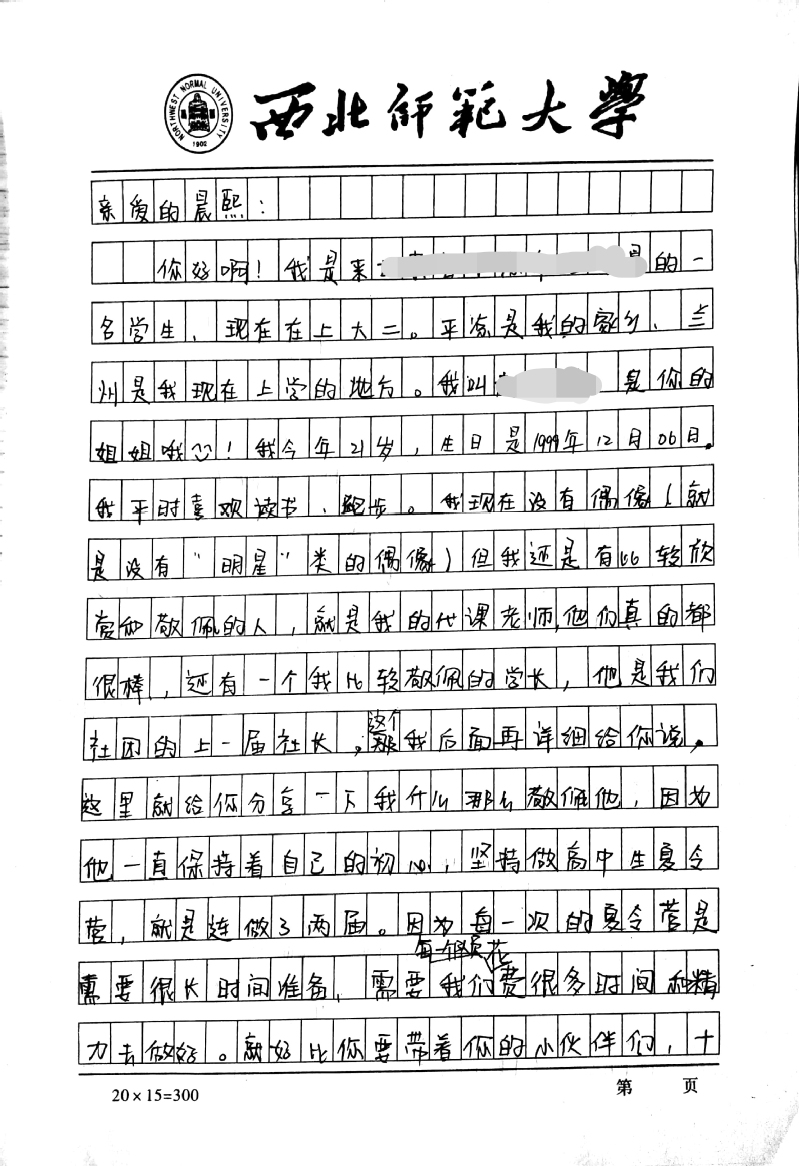 NORTHWEST NORMAL UNIVERSITY
1902
西北师范大学
亲爱的晨熙：
你好啊！我是来 的一
名学生、现在在上大二。平凉是我的家乡、兰
州是我现在上学的地方。我叫 是你的
姐姐哦！我今年21岁，生日是1999年12月06日。
我平时喜欢读书、跑步。我现在没有偶像（就
是没有“明星”类的偶像）但我还是有比较欣
赏和敬佩的人，就是我的代课老师，他们真的都
很棒，还有一个我比较敬佩的学长，他是我们
社团的上一届社长。这个我后面再详细给你说。
这里就给你分享一下我什么那么敬佩他，因为
他一直保持着自己的初心，坚持做高中生夏令
营，就是连做了两届。因为每一次的夏令营是
需要很长时间准备，需要我们每一个成员花费很多时间和精
力去做好。就好比你要带着你的小伙伴们，十
20×15=300
第 页